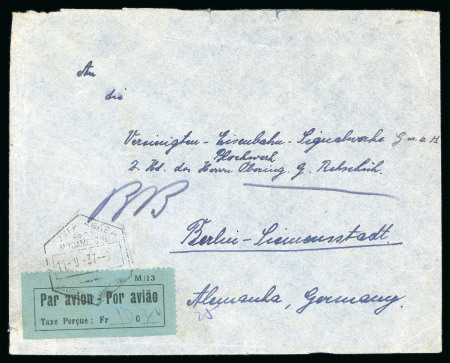 An
die
Vereinigten-Eisenbahn-Signalwerke G.m.b.H
Blockwerk
z. Hd. des Herrn Obering. G.
Berlin-Siemensstadt.
Alemanha, Germany.
M/13
Par avion - Por avião
Taxe Perçue: Fr C